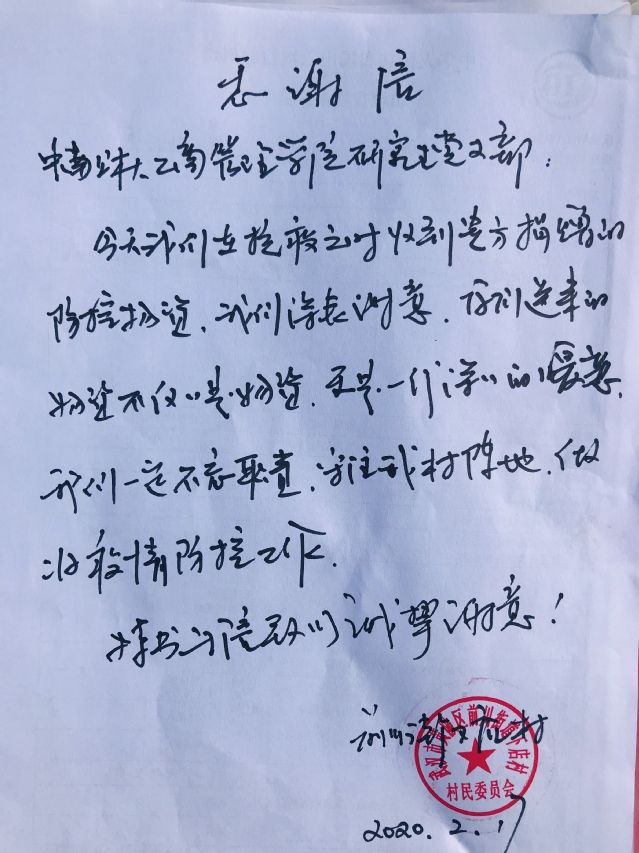 感谢信
中南财大工商管理学院研究生党支部：
今天我们在抗疫之时收到贵方捐赠的
防控物资，我们深表谢意，你们送来的
物资不仅仅是物资，更是一份深深的暖意，
我们一定不忘职责，守住我村阵地，做
好疫情防控工作。
特书此信致以诚挚谢意！
前川街村
武汉市黄陂区前川街店村
村民委员会
2020.2.17